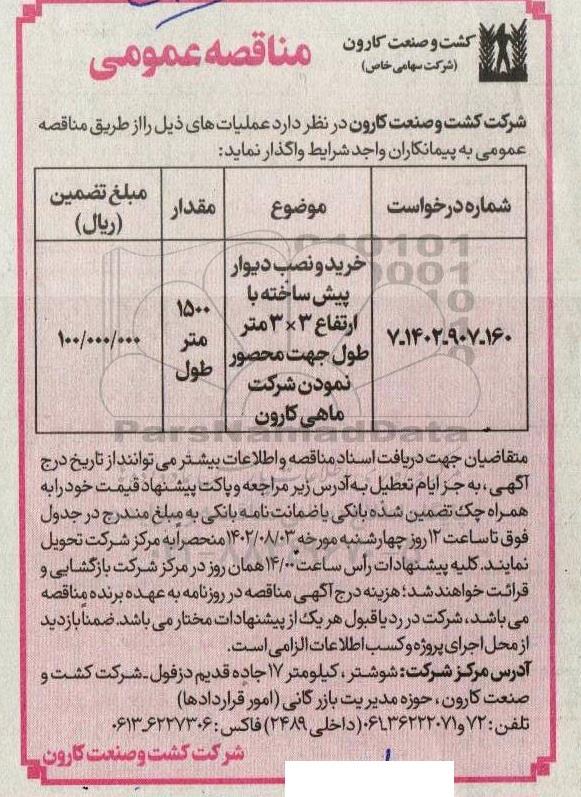 کشت و صنعت کارون
(شرکت سهامی خاص)
مناقصه عمومی
شرکت کشت و صنعت کارون در نظر دارد عملیات های ذیل را از طریق مناقصه
عمومی به پیمانکاران واجد شرایط واگذار نماید:
شماره درخواست موضوع مقدار مبلغ تضمین (ریال)
۷-۱۴۰۲-۹۰۷-۱۶۰
خرید و نصب دیوار
پیش ساخته با
ارتفاع ۳×۳ متر
طول جهت محصور
نمودن شرکت
ماهی کارون
۱۵۰۰
متر
طول
۱۰۰/۰۰۰/۰۰۰
ParsNamadData
متقاضیان جهت دریافت اسناد مناقصه و اطلاعات بیشتر می توانند از تاریخ درج
آگهی، به جز ایام تعطیل به آدرس زیر مراجعه و پاکت پیشنهاد قیمت خود را به
همراه چک تضمین شده بانکی یا ضمانت نامه بانکی به مبلغ مندرج در جدول
فوق تا ساعت ۱۲ روز چهارشنبه مورخه ۱۴۰۲/۰۸/۰۳ منحصراً به مرکز شرکت تحویل
نمایند. کلیه پیشنهادات رأس ساعت ۱۴/۰۰ همان روز در مرکز شرکت بازگشایی و
قرائت خواهند شد؛ هزینه درج آگهی مناقصه در روزنامه به عهده برنده مناقصه
می باشد، شرکت در رد یا قبول هر یک از پیشنهادات مختار می باشد. ضمناً بازدید
از محل اجرای پروژه و کسب اطلاعات الزامی است.
آدرس مرکز شرکت: شوشتر، کیلومتر ۱۷ جاده قدیم دزفول - شرکت کشت و
صنعت کارون، حوزه مدیریت بازرگانی (امور قراردادها)
تلفن: ۷۲ و ۰۶۱-۳۶۲۲۲۰۷۱ (داخلی ۲۴۸۹) فاکس: ۰۶۱۳-۶۲۲۷۳۰۶
شرکت کشت و صنعت کارون